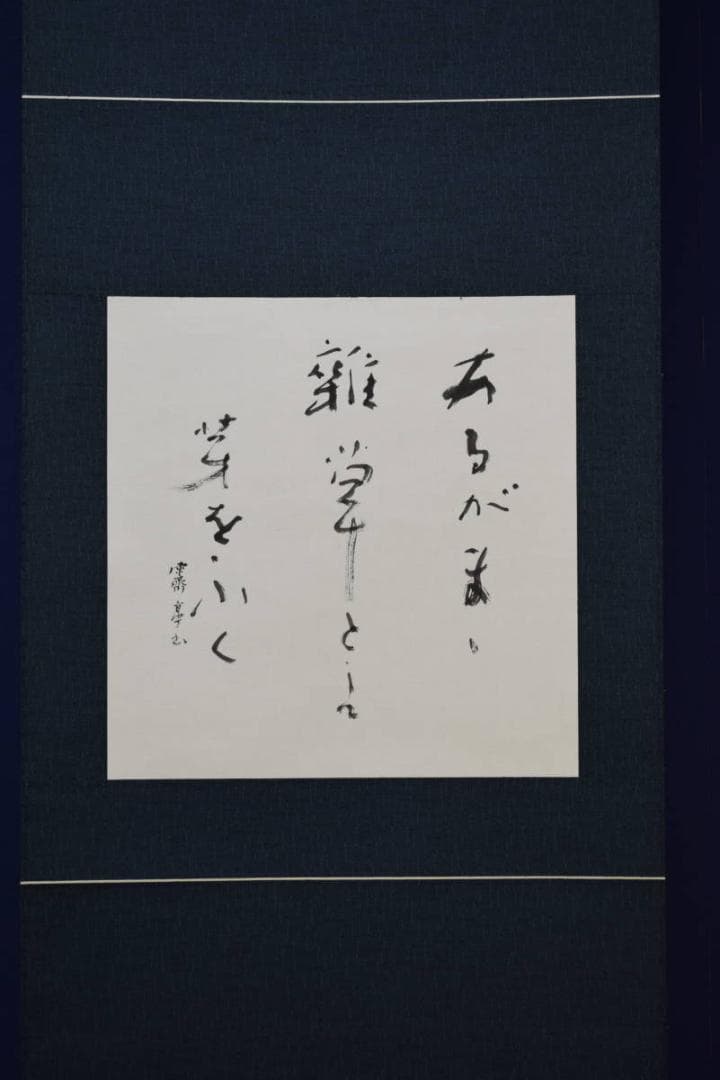 あるがまゝ
雑草として
芽をふく